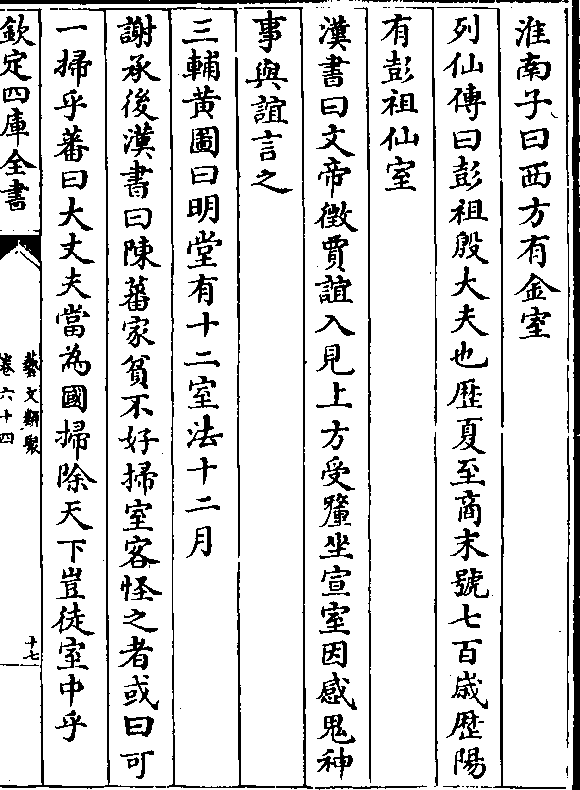 淮南子曰西方有金室
列仙傳曰彭祖殷大夫也歴夏至商末號七百歳歴陽
有彭祖仙室
漢書曰文帝徴賈誼入見上方受釐坐宣室因感鬼神
事與誼言之
三輔黄圖曰明堂有十二室法十二月
謝承後漢書曰陳蕃家貧不好掃室客怪之者或曰可
一掃乎蕃曰大丈夫當為國掃除天下豈徒室中乎
欽定四庫全書
藝文類聚
卷六十四
十七